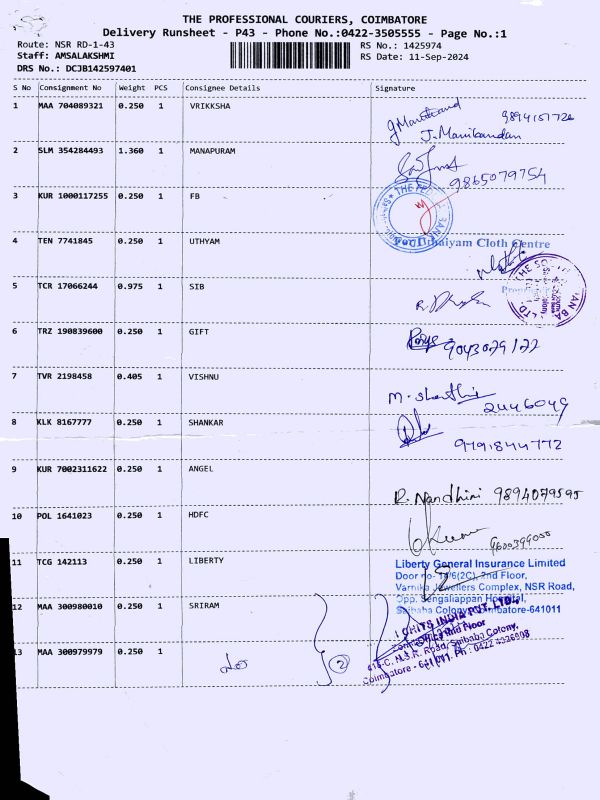 THE PROFESSIONAL COURIERS, COIMBATORE
Delivery Runsheet - P43 - Phone No.:0422-3505555 - Page No.:1
Route: NSR RD-1-43
RS No.: 1425974
Staff: AMSALAKSHMI
RS Date: 11-Sep-2024
DRS No.: DCJB142597401
S No Consignment No Weight PCS Consignee Details Signature
1 MAA 704089321 0.250 1 VRIKKSHA
J. Manikandan
2 SLM 354284493 1.360 1 MANAPURAM
9865079754
3 KUR 1000117255 0.250 1 FB
4 TEN 7741845 0.250 1 UTHYAM
Cloth Centre
5 TCR 17066244 0.975 1 SIB
6 TRZ 190839600 0.250 1 GIFT
9043079177
7 TVR 2198458 0.405 1 VISHNU
2446049
8 KLK 8167777 0.250 1 SHANKAR
9791844772
9 KUR 7002311622 0.250 1 ANGEL
R. Nandhini 9894079595
10 POL 1641023 0.250 1 HDFC
11 TCG 142113 0.250 1 LIBERTY
Liberty General Insurance Limited
Door no- 2nd Floor,
Varnika Jewellers Complex, NSR Road,
Opp. Sengaliappan Hospital,
Saibaba Colony, Coimbatore-641011
12 MAA 300980010 0.250 1 SRIRAM
CHITS INDIA PVT. LTD.
13 MAA 300979979 0.250 1
2
N.S.R. Road, Saibaba Colony,
Coimbatore - 641 011. Ph : 0422